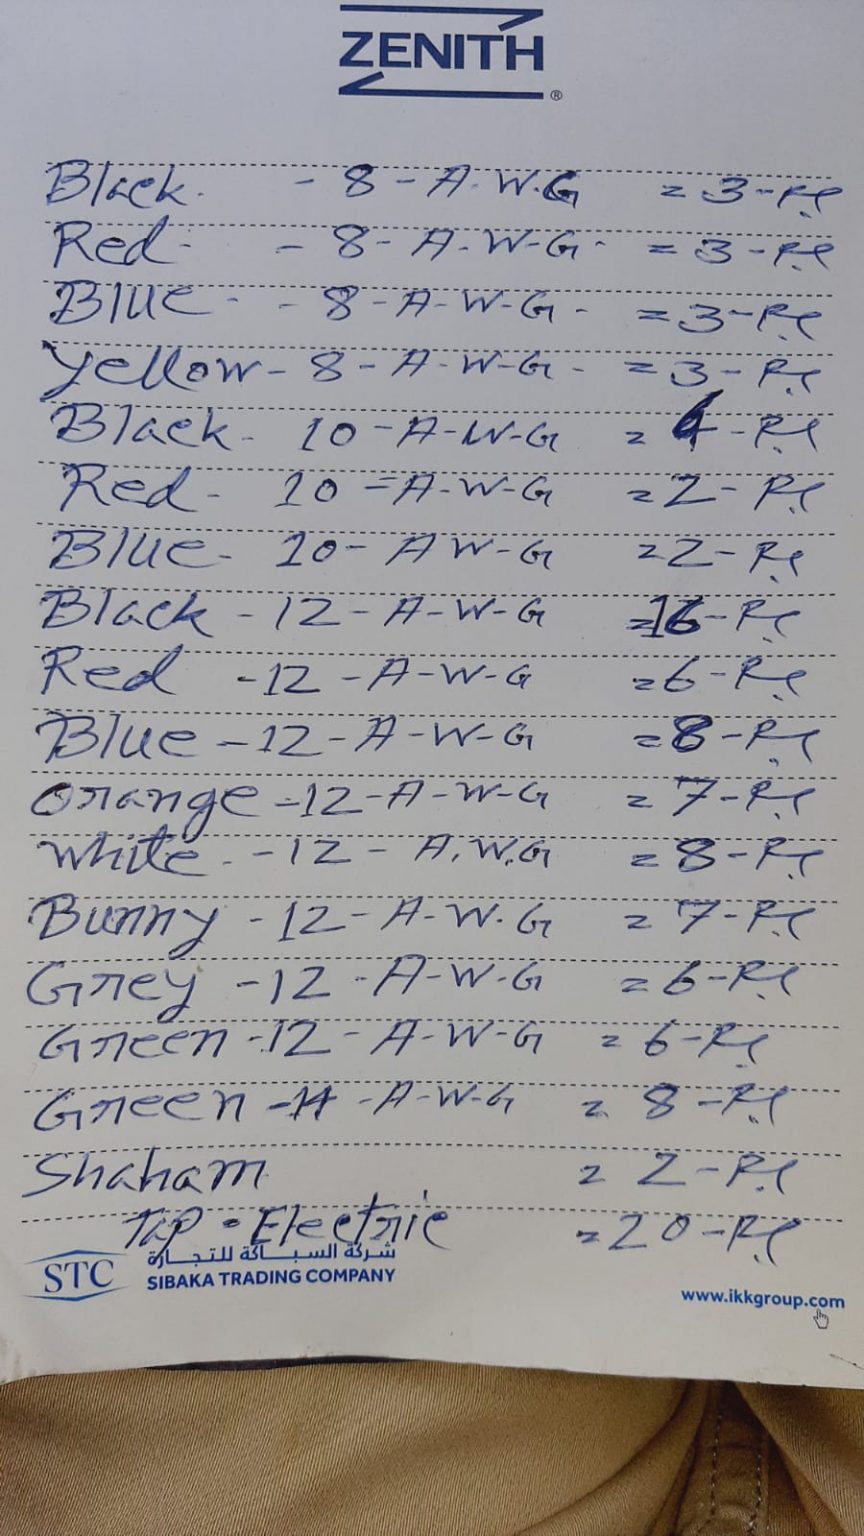 ZENITH
®
Black. - 8 - A. W.G = 3 - R.l
Red - - 8 - A - W - G - = 3 - R.l
Blue - - 8 - A - W - G - = 3 - R.l
Yellow - 8 - A - W - G - = 3 - R.l
Black - 10 - A - W - G = - R.l
Red - 10 = A - W - G = 2 - R.l
Blue - 10 - A W - G = 2 - R.l
Black - 12 - A - W - G = 16 - R.l
Red - 12 - A - W - G = 6 - R.l
Blue - 12 - A - W - G = 8 - R.l
Orange - 12 - A - W - G = 7 - R.l
White - - 12 - A.W.G = 8 - R.l
Bunny - 12 - A - W. G = 7 - R.l
Grey - 12 - A - W - G = 6 - R.l
Green - 12 - A - W - G = 6 - R.l
Green - - A - W - G = 8 - R.l
Shaham = 2 - R.l
Tap - Electric = 20 - R.l
شركة السباكة للتجارة
STC SIBAKA TRADING COMPANY
www.ikkgroup.com